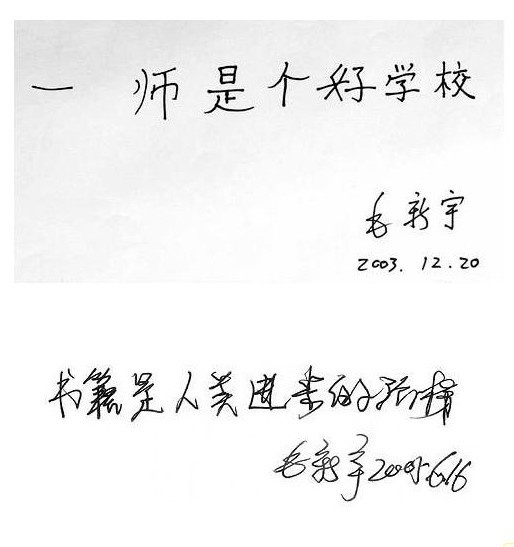 一 师是个好学校
毛新宇
2003. 12. 20
书籍是人类进步的阶梯
毛新宇 2005.6.16